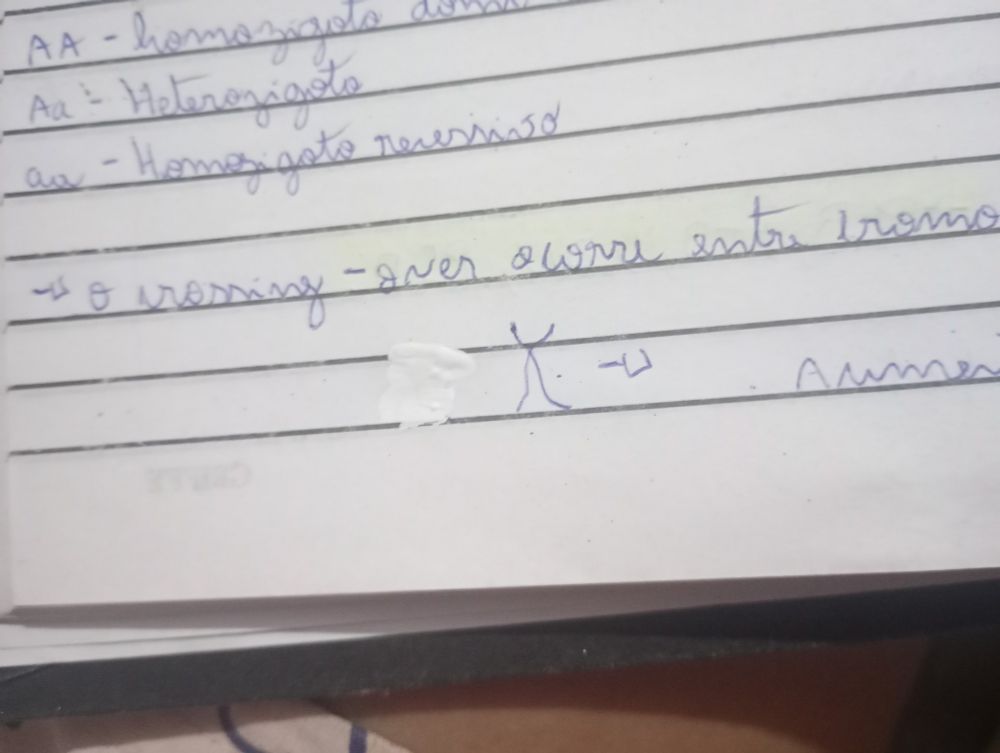 AA - homozigoto dom
Aa - Heterozigoto
aa - Homozigoto recessivo
→ O crossing-over ocorre entre cromo
→ Aumen